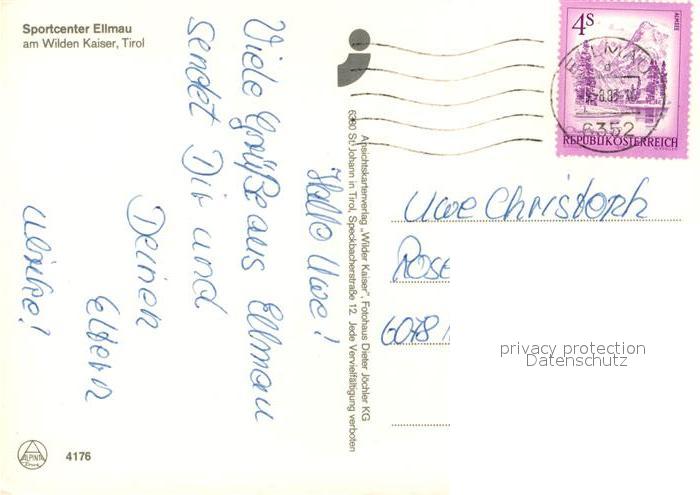 Sportcenter Ellmau
am Wilden Kaiser, Tirol
Hallo Uwe!
Viele Grüße aus Ellmau
sendet Dir und
Deinen
Eltern
Ulrike!
ALPINA
4176
Ansichtskartenverlag „Wilder Kaiser", Fotohaus Dieter Jöchler KG
6380 St. Johann in Tirol, Speckbacherstraße 12. Jede Vervielfältigung verboten
4S
ALMSEE
REPUBLIK ÖSTERREICH
ELLMAU
6352
Uwe Christoph
Rose
6078
privacy protection
Datenschutz